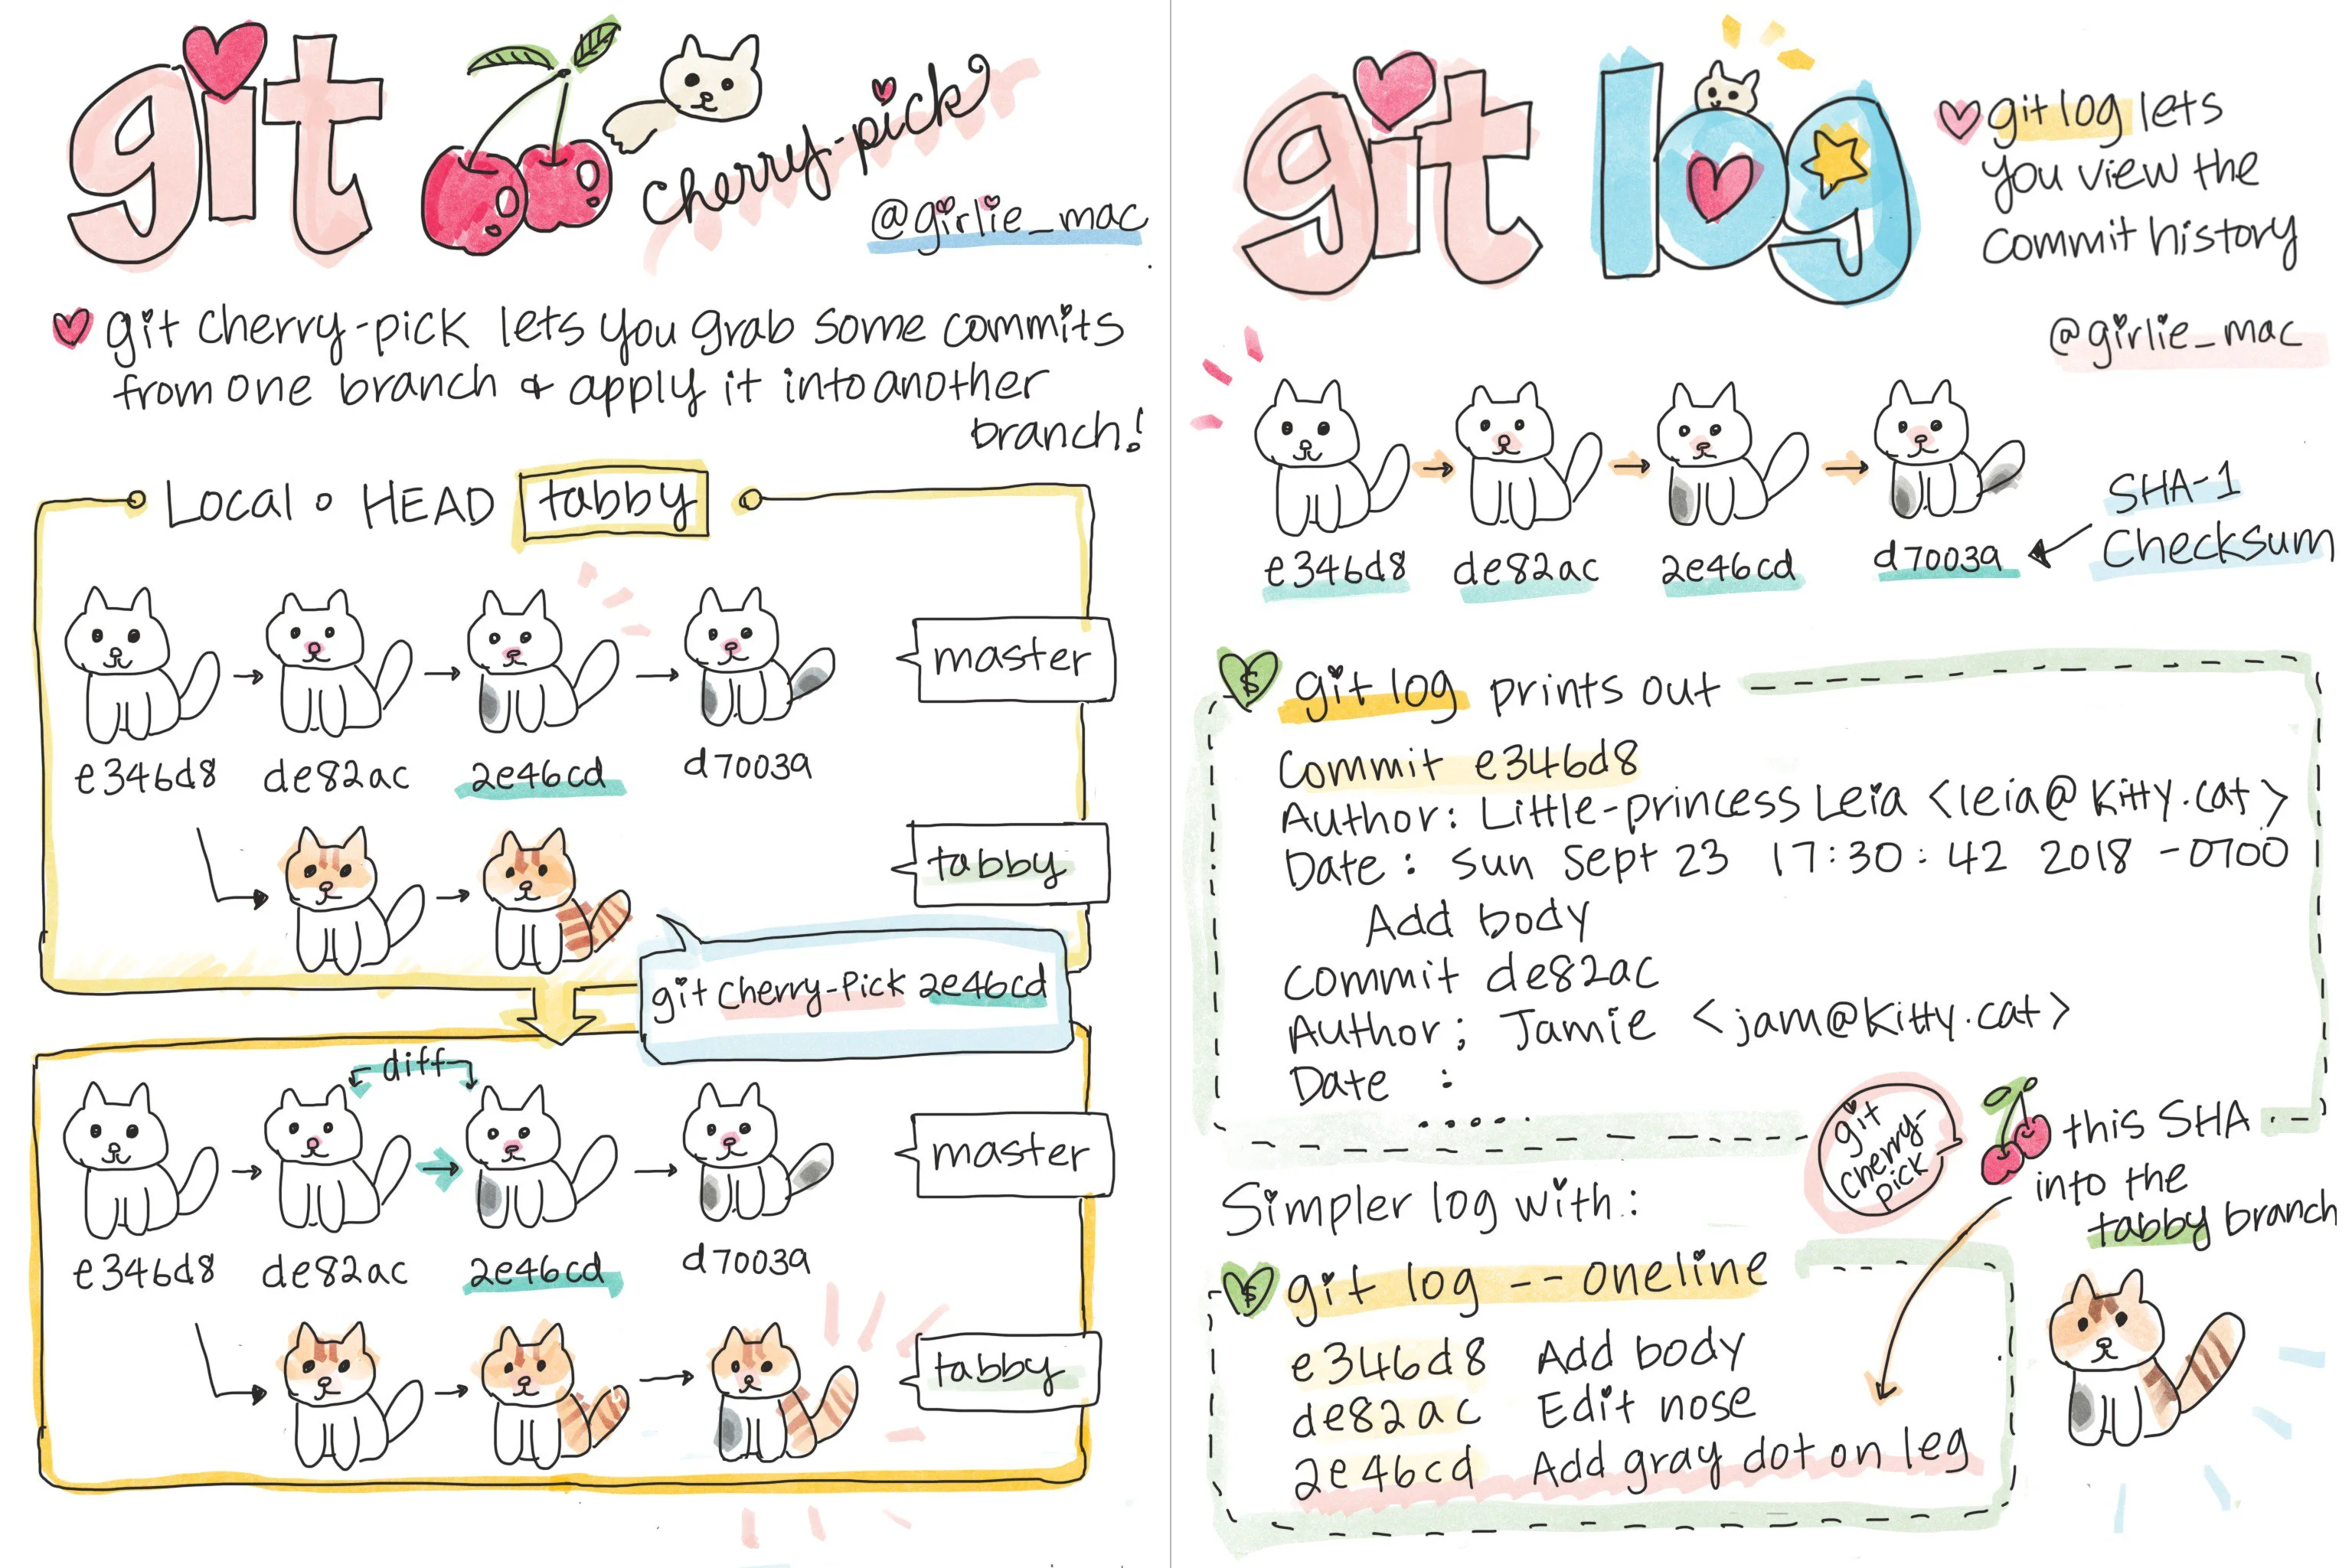 git cherry-pick
@girlie_mac
git cherry-pick lets you grab some commits
from one branch & apply it into another
branch!
Local • HEAD tabby
master
e346d8 de82ac 2e46cd d70039
tabby
git cherry-pick 2e46cd
diff
master
e346d8 de82ac 2e46cd d70039
tabby
git log
git log lets
you view the
commit history
@girlie_mac
SHA-1
checksum
e346d8 de82ac 2e46cd d70039
$ git log prints out
Commit e346d8
Author: Little-princess Leia <leia@kitty.cat>
Date : Sun Sept 23 17:30:42 2018 -0700
Add body
Commit de82ac
Author; Jamie <jam@kitty.cat>
Date :
.....
git
cherry-
pick
this SHA
into the
tabby branch
Simpler log with:
$ git log -- oneline
e346d8 Add body
de82ac Edit nose
2e46cd Add gray dot on leg